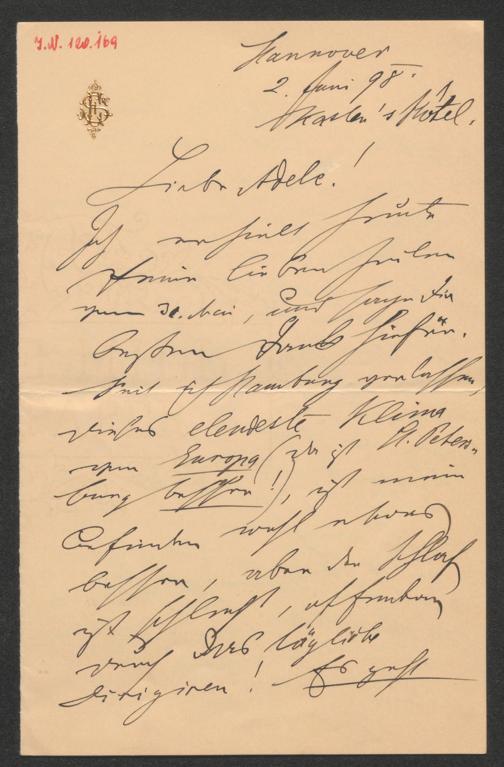 I.N. 120.169
Hannover
2. Juni 98.
Kasten's Hôtel.
Liebe Adele!
Ich erhielt heute
Deine lieben Zeilen
vom 30. Mai, und sage Dir
besten Dank hiefür.
Seit ich Hamburg verlassen,
dieses elendeste Klima
von Europa (da ist St. Peters-
burg besser!), ist mein
Befinden wohl etwas
besser, aber der Schlaf
ist schlecht, offenbar
durch das tägliche
Dirigiren! Es geht